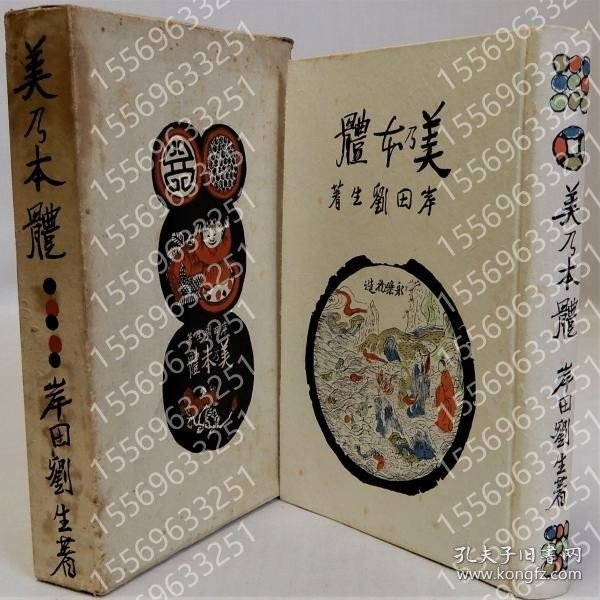 美乃本體
岸田劉生著
美乃本體
美乃本體
岸田劉生著
永樂花造
美乃本體
岸田劉生著
15569633251
孔夫子旧书网
www.kongfz.com